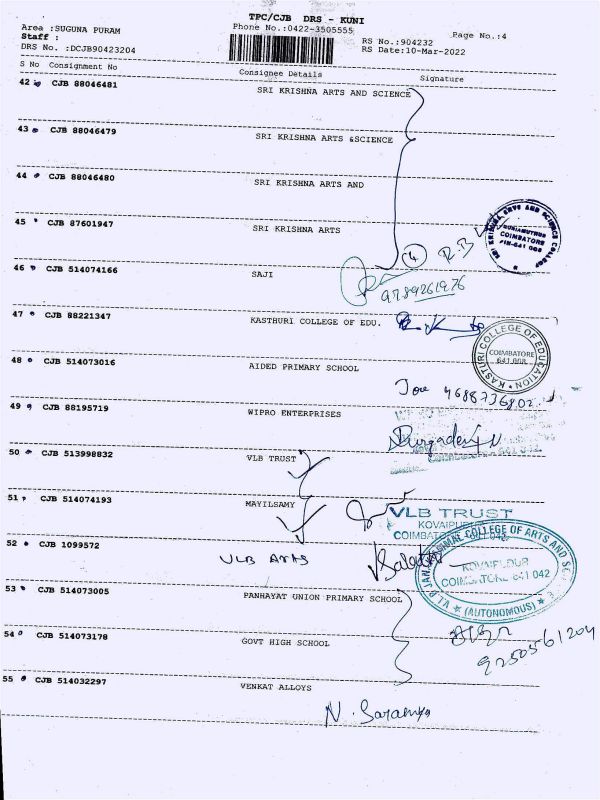 TPC/CJB DRS - KUNI
Area :SUGUNA PURAM
Phone No.:0422-3505555
Page No.:4
Staff :
RS No.:904232
DRS No. :DCJB90423204
RS Date:10-Mar-2022
S No Consignment No Consignee Details Signature
42 CJB 88046481 SRI KRISHNA ARTS AND SCIENCE
43 CJB 88046479 SRI KRISHNA ARTS &SCIENCE
44 CJB 88046480 SRI KRISHNA ARTS AND
45 CJB 87601947 SRI KRISHNA ARTS
SRI KRISHNA ARTS AND SCIENCE COLLEGE
COIMBATORE
4 R.B
46 CJB 514074166 SAJI
9789261976
47 CJB 88221347 KASTHURI COLLEGE OF EDU.
KASTURI COLLEGE OF EDUCATION
COIMBATORE
641 008
48 CJB 514073016 AIDED PRIMARY SCHOOL
49 CJB 88195719 WIPRO ENTERPRISES
50 CJB 513998832 VLB TRUST
51 CJB 514074193 MAYILSAMY
VLB TRUST
KOVAIPUDUR
52 CJB 1099572 VLB ARTS
COLLEGE OF ARTS AND
KOVAIPUDUR
COIMBATORE 641 042
(AUTONOMOUS)
53 CJB 514073005 PANHAYAT UNION PRIMARY SCHOOL
54 CJB 514073178 GOVT HIGH SCHOOL
9250561204
55 CJB 514032297 VENKAT ALLOYS
N. Saranya